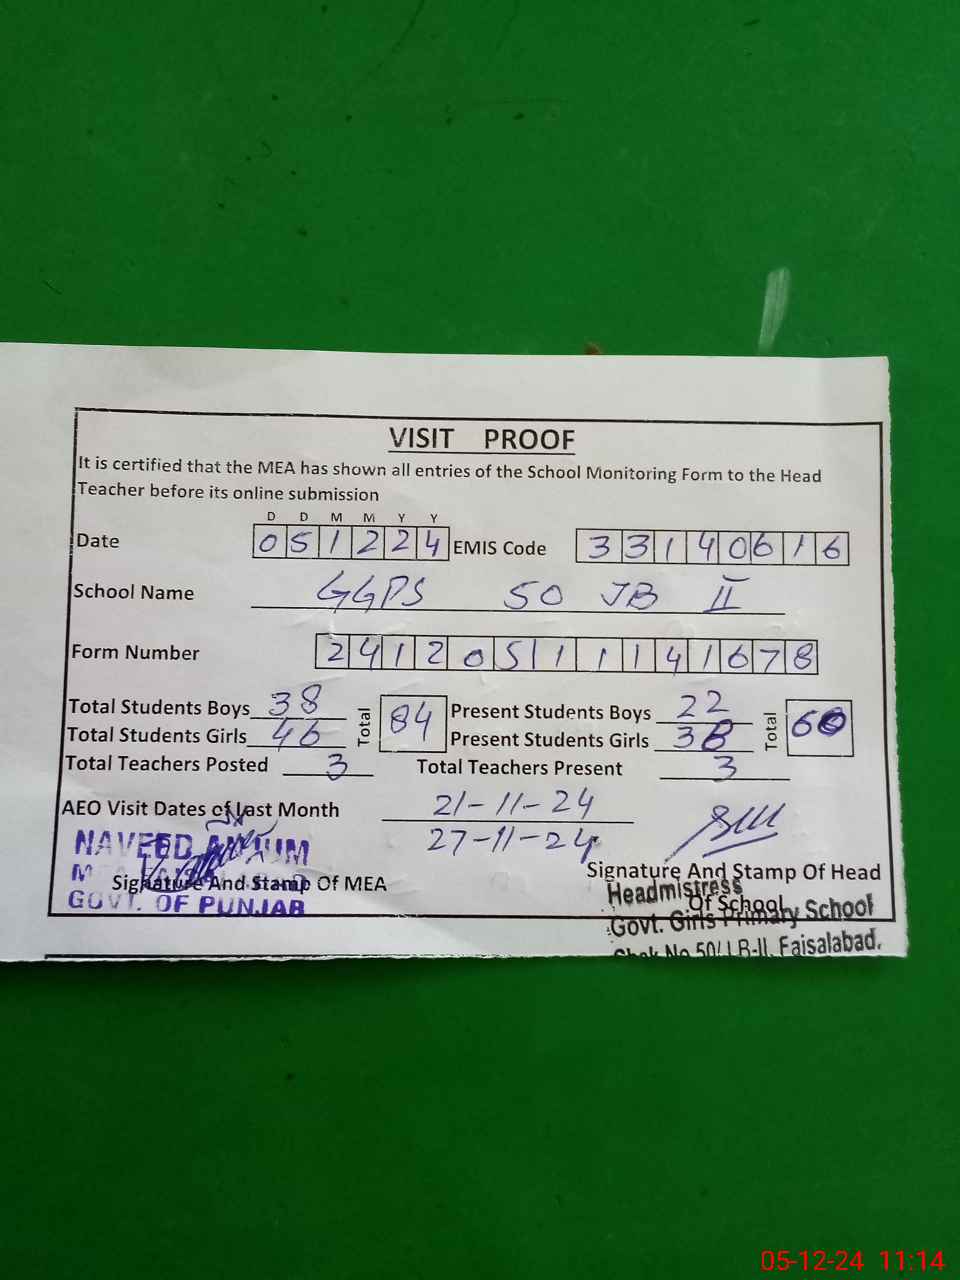 VISIT PROOF
It is certified that the MEA has shown all entries of the School Monitoring Form to the Head
Teacher before its online submission
D D M M Y Y
Date 051224 EMIS Code 33140616
School Name GGPS 50 JB II
Form Number 241205111141678
Total Students Boys 38 Total 84 Present Students Boys 22 Total 60
Total Students Girls 46 Present Students Girls 38
Total Teachers Posted 3 Total Teachers Present 3
AEO Visit Dates of Last Month 21-11-24
27-11-24
NAVEED ANJUM
Signature And Stamp Of MEA
GOVT. OF PUNJAB
Signature And Stamp Of Head
Of School
Headmistress
Govt. Girls Primary School
Chak No 50/J.B-II, Faisalabad.
05-12-24 11:14